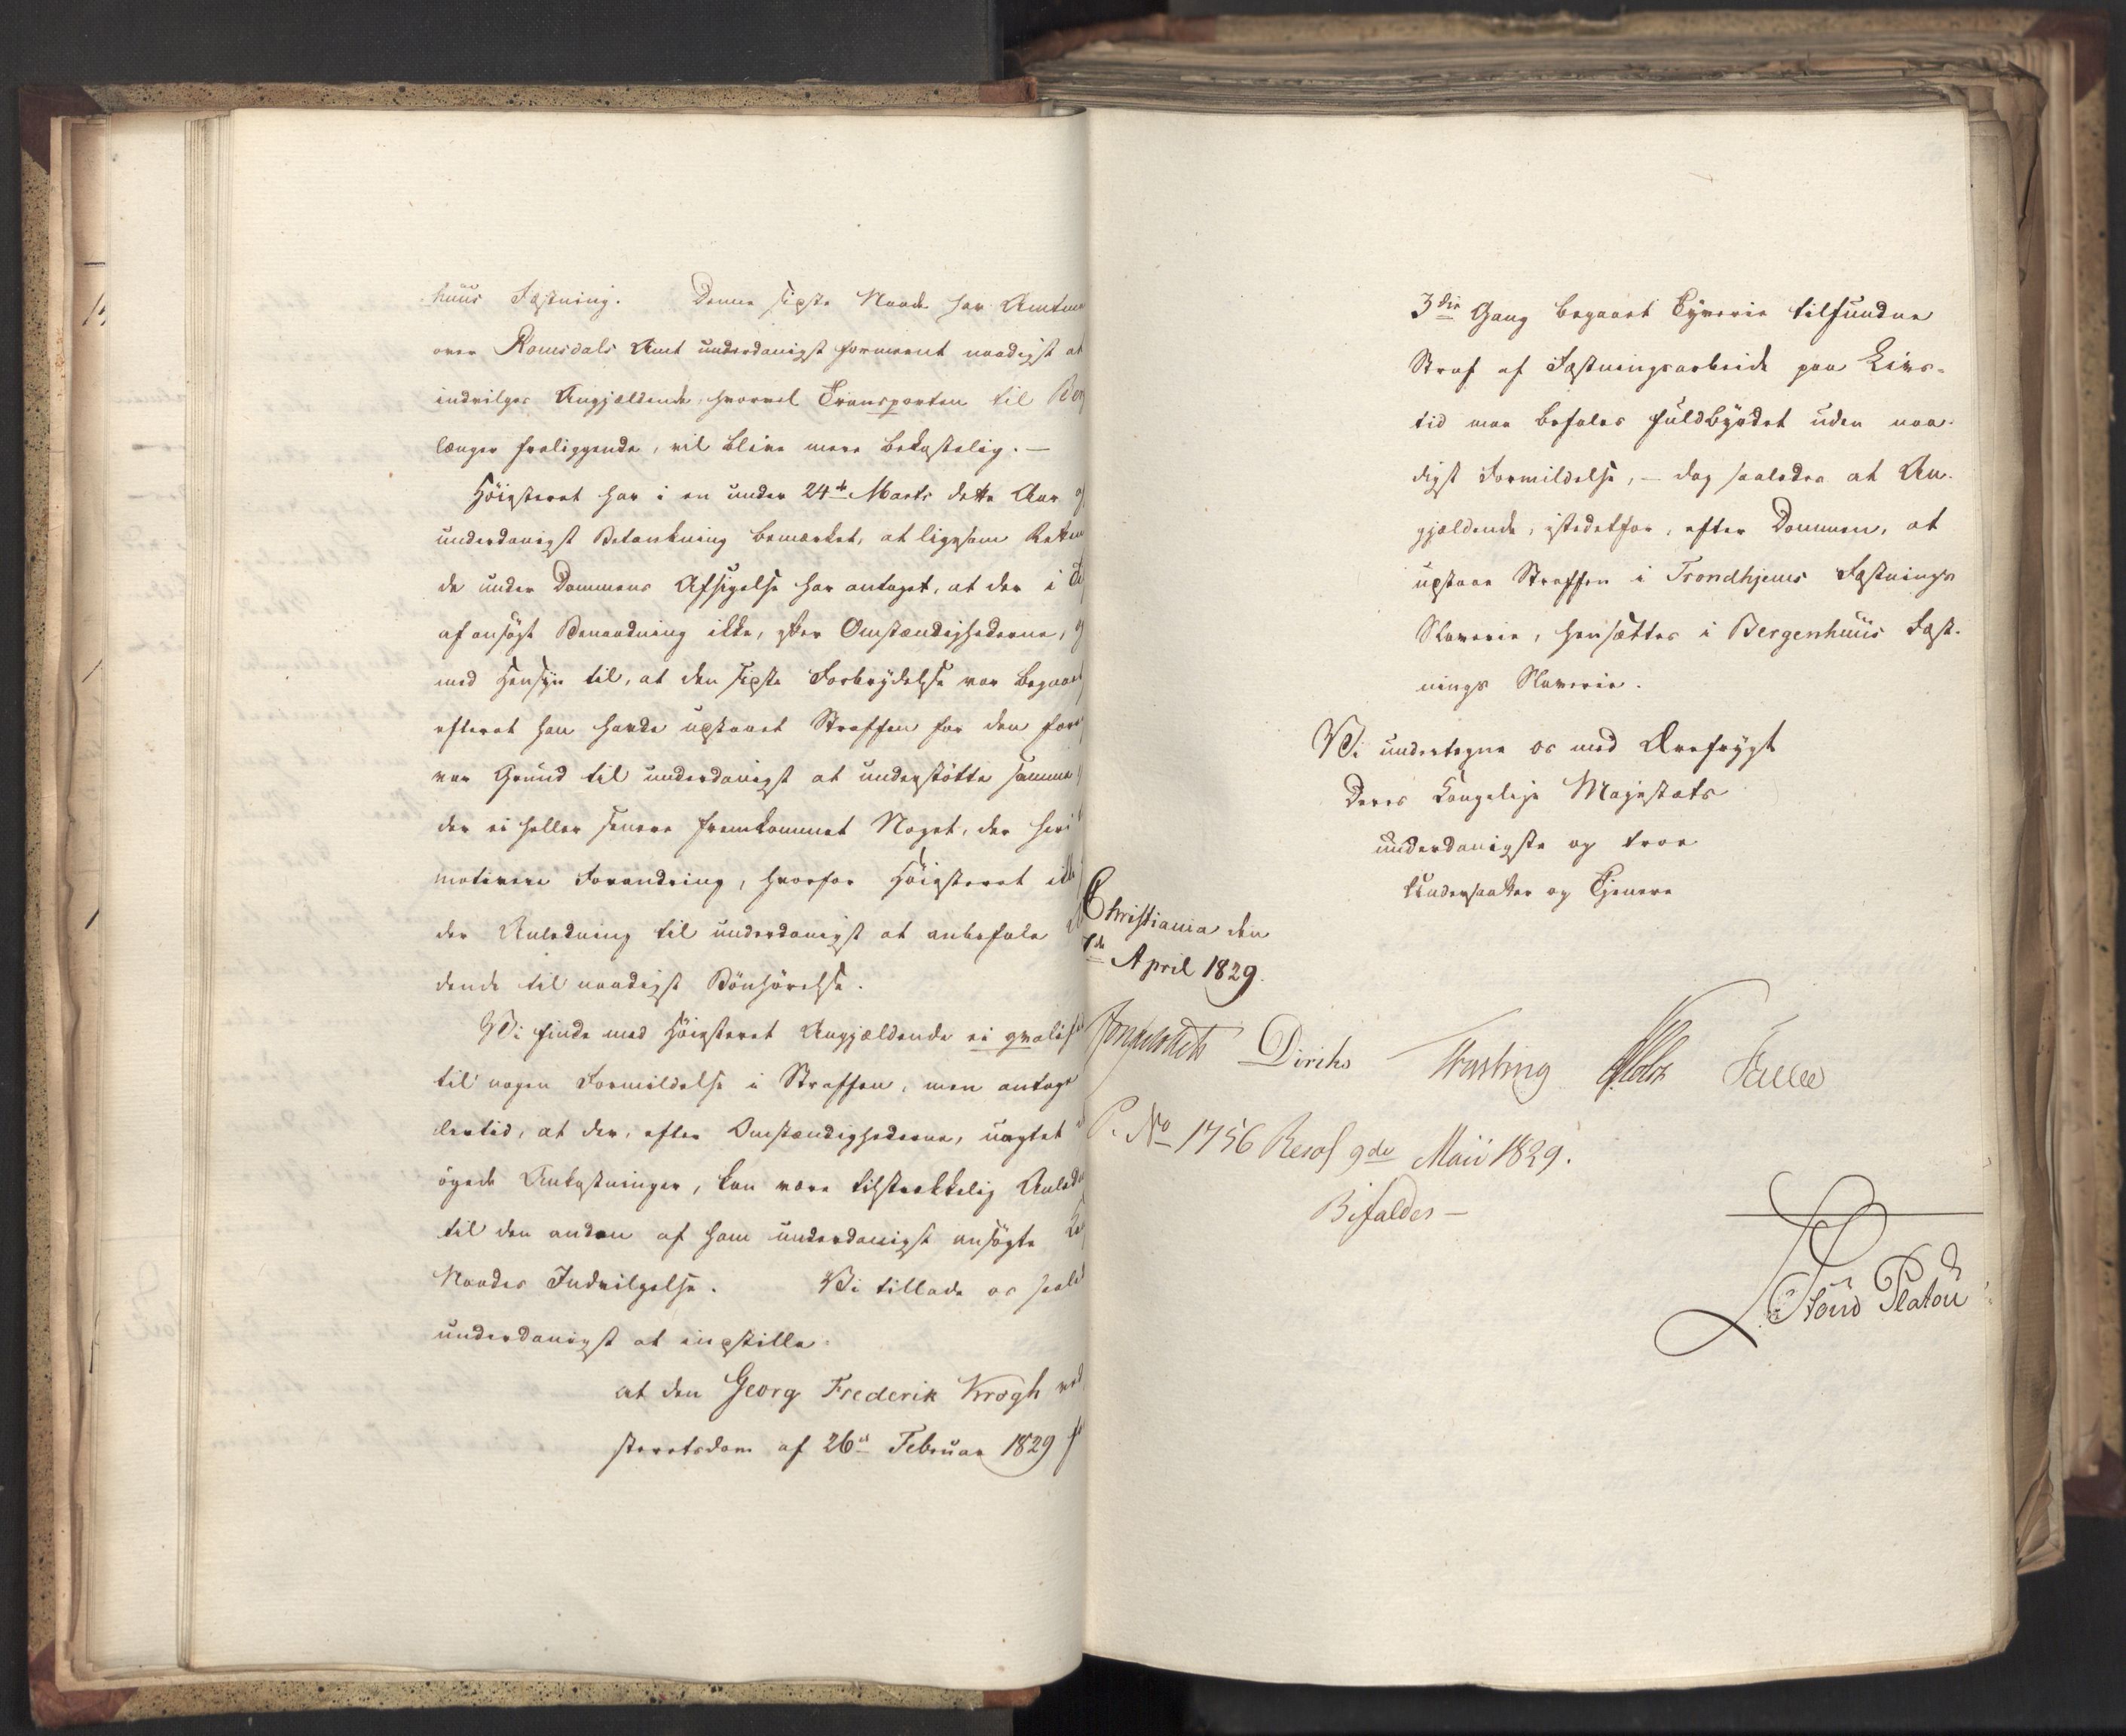 huus Fæstning. Denne sidste Naade har Amtm
over Romsdals Amt underdanigst formeent naadigst at
indvilges Angjældende, hvorvel Transporten til Ber
længer fraliggende, vil blive mere bekostelig. —
Höiesteret har i en under 24de Marts dette Aar
underdanigst Betænkning bemærket, at ligesom Retten
de under Dommens Afsigelse har antaget, at der i
af ansögt Benaadning ikke, efter Omstændighederne, og
med Hensyn til, at den sidste Forbrydelse var begaaet
efterat han havde udstaaet Straffen for den för
var Grund til underdanigst at understötte samme
der ei heller senere fremkommet Noget, der heri
motivere Forandring, hvorfor Höiesteret ikke
der Anledning til underdanigst at anbefale
dende til naadigst Bönhörelse.
Vi finde med Höiesteret Angjældende ei qvalif
til nogen Formildelse i Straffen, men antage
lertid, at der, efter Omstændighederne, uagtet
ögede Omkostninger, kan være tilstrækkelig Anled
til den anden af ham underdanigst ansögte
Naades Indvilgelse. Vi tillade os saaled
underdanigst at indstille:
at den Georg Frederik Krogh ved
steretsdom af 26de Februar 1829 f
3die Gang begaaet Tyverie tilfundne
Straf af Fæstningsarbeide paa Livs-
tid maa befales fuldbyrdet uden naa-
digst Formildelse, — dog saaledes at An-
gjældende, istedetfor, efter Dommen, at
udstaae Straffen i Trondhjems Fæstnings
Slaverie, hensættes i Bergenhuus Fæst-
nings Slaverie.
Vi undertegne os med Ærefrygt
Deres Kongelige Majestæts
underdanigste og troe
Undersaatter og Tjenere
Christiania den
7de April 1829.
Diriks Krog Fasting Falsen
P. No 1756 Resol 9de Maii 1829.
Bifaldes —
Platou